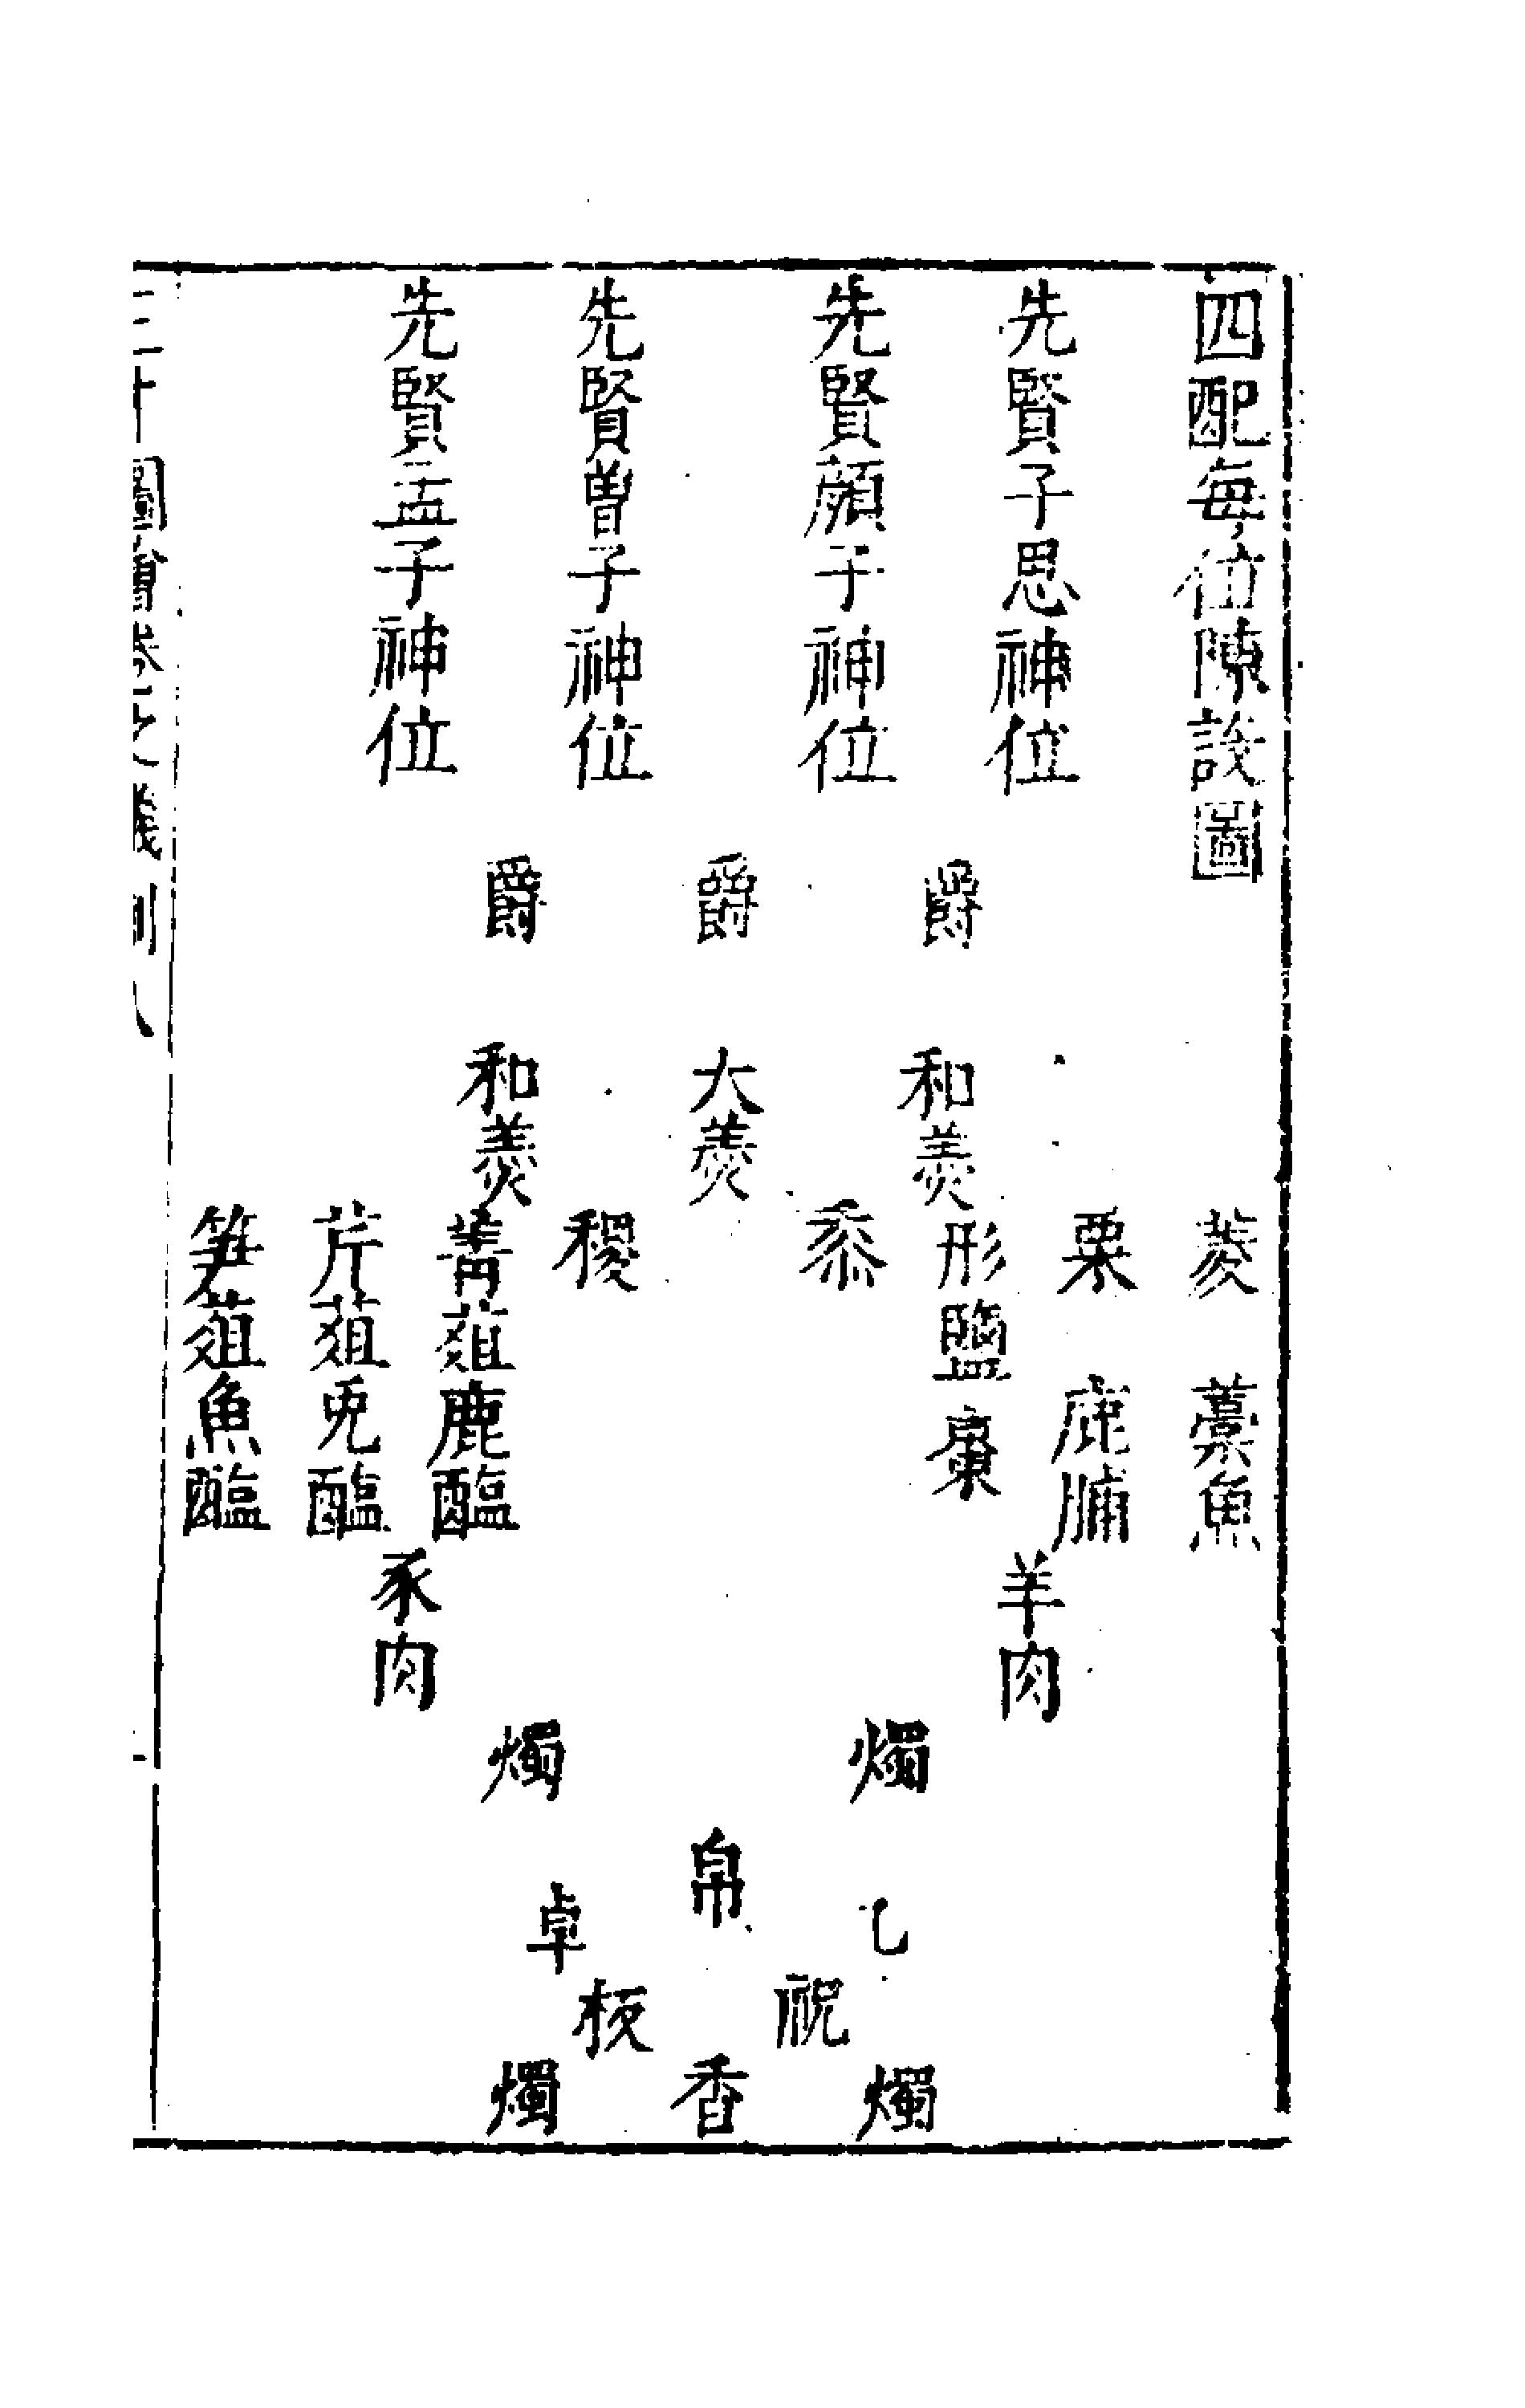 四配每位陳設圖
先賢子思神位
先賢顏子神位
先賢曾子神位
先賢孟子神位
爵
爵
爵
和羹
大羹
和羹
菱
栗
形鹽
黍
稷
菁葅鹿醢
芹葅兎醢
笋葅魚醢
藁魚
鹿脯
棗
羊肉
豕肉
燭
燭
帛
卓
祝
板
燭
香
燭
圖會